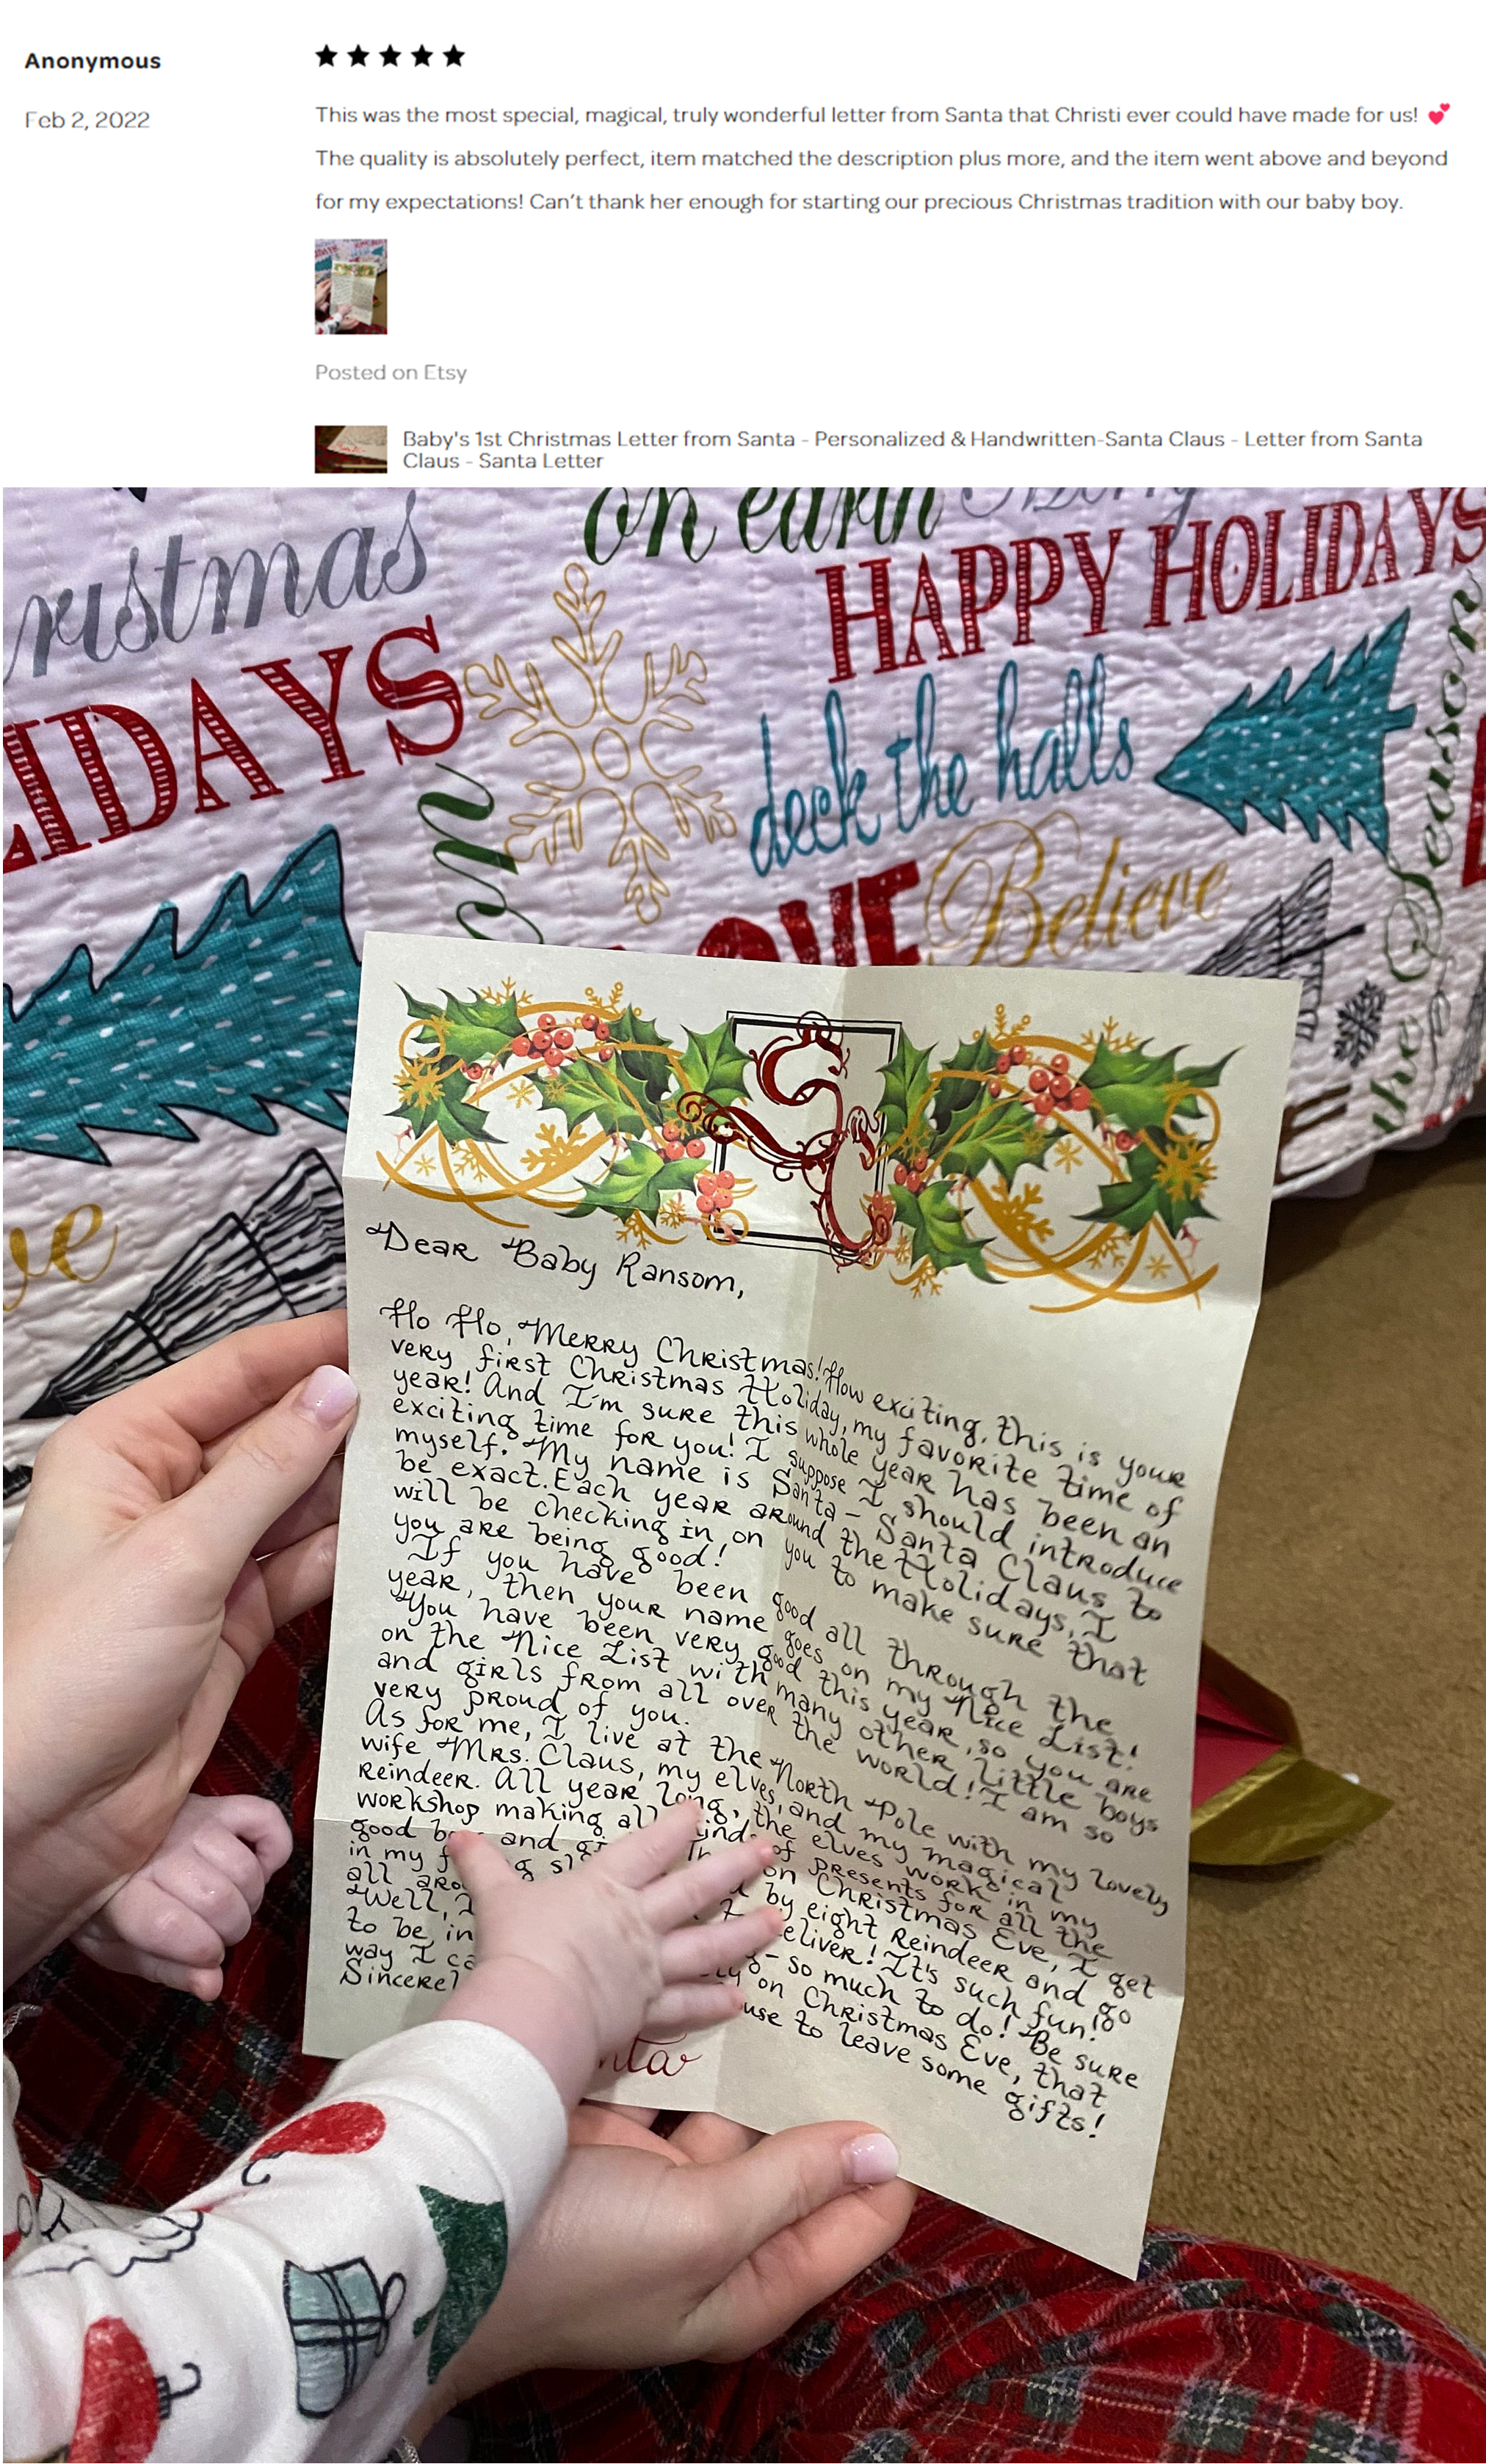 Anonymous
★★★★★
Feb 2, 2022
This was the most special, magical, truly wonderful letter from Santa that Christi ever could have made for us! 💕
The quality is absolutely perfect, item matched the description plus more, and the item went above and beyond
for my expectations! Can't thank her enough for starting our precious Christmas tradition with our baby boy.
Posted on Etsy
Baby's 1st Christmas Letter from Santa - Personalized & Handwritten-Santa Claus - Letter from Santa
Claus - Santa Letter
ristmas
on earth
Merry
HAPPY HOLIDAYS
LIDAYS
deck the halls
om
OVE
Believe
the Season
ve
S
C
Dear Baby Ransom,
Ho Ho, Merry Christmas! How exciting, this is your
very first Christmas Holiday, my favorite time of
year! And I'm sure this whole year has been an
exciting time for you! I suppose I should introduce
myself. My name is Santa - Santa Claus to
be exact. Each year around the Holidays, I
will be checking in on you to make sure that
you are being good!
If you have been good all through the
year, then your name goes on my Nice List!
You have been very good this year, so you are
on the Nice List with many other little boys
and girls from all over the world! I am so
very proud of you.
As for me, I live at the North Pole with my lovely
wife Mrs. Claus, my elves, and my magical
Reindeer. All year long, the elves work in my
workshop making all kinds of presents for all the
good b and gi on Christmas Eve, I get
in my by eight Reindeer and go
all aro eliver! It's such fun!
Well, I - so much to do! Be sure
to be in on Christmas Eve, that
way I ca use to leave some gifts!
Sincerel
nta